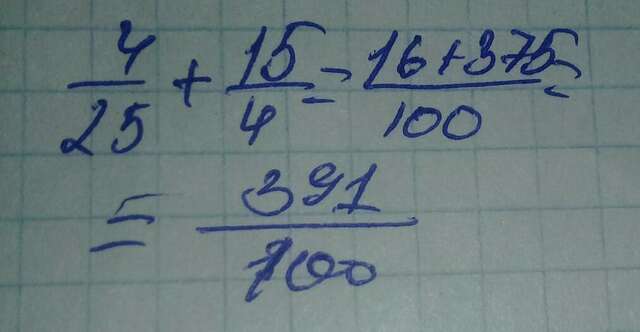 4/25 + 15/4 = 16+375/100 =
= 391/100